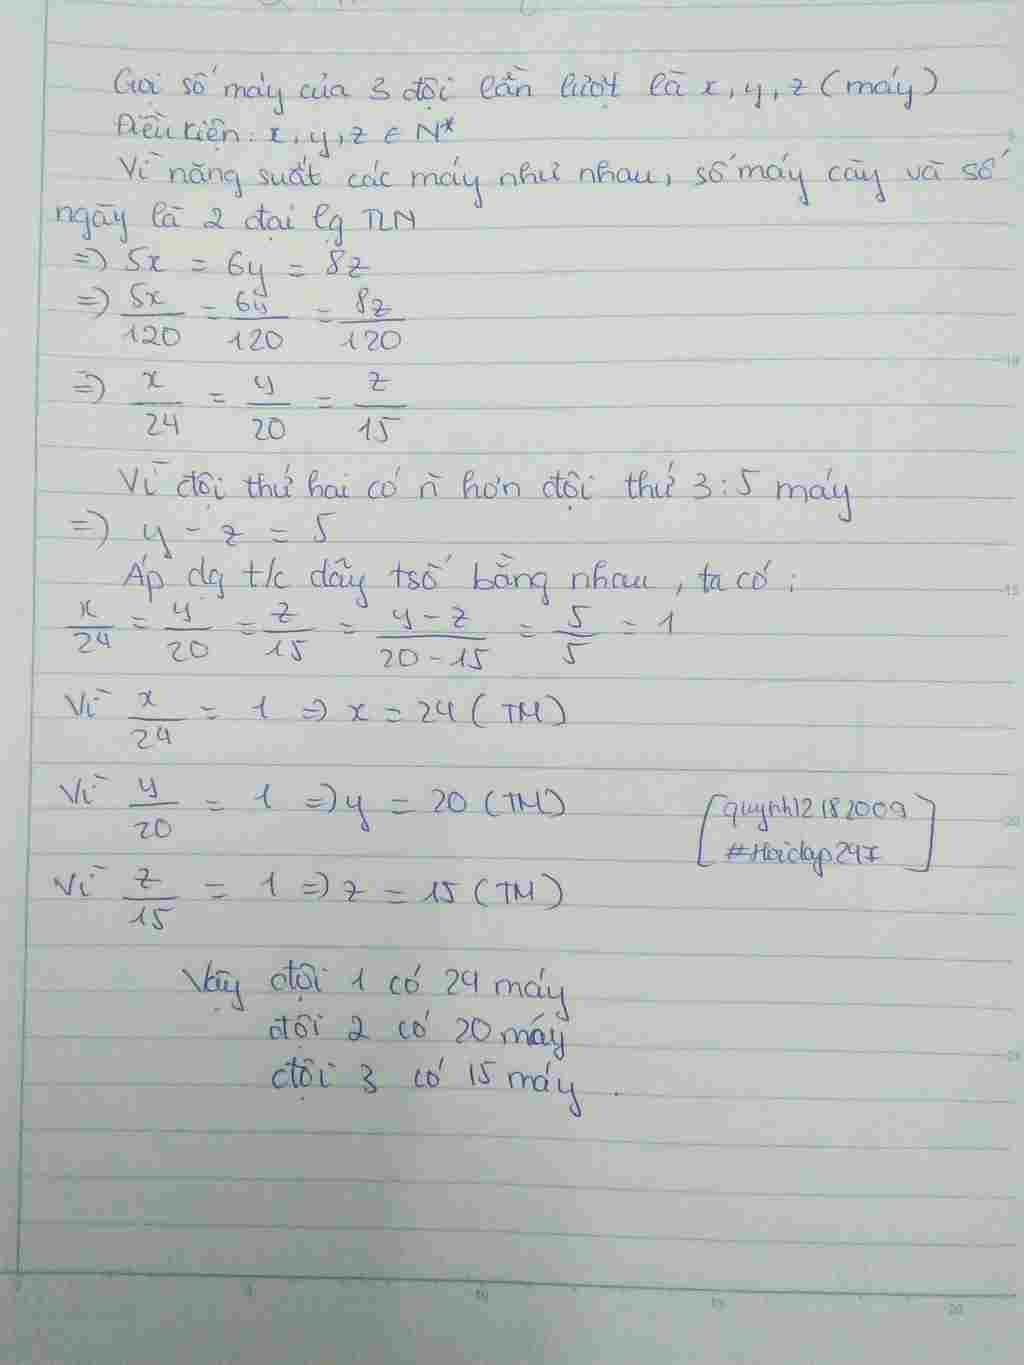 Gọi số máy của 3 đội lần lượt là x, y, z (máy)
Điều kiện: x, y, z ∈ N*
Vì năng suất các máy như nhau, số máy cày và số
ngày là 2 đại lg TLN
=> 5x = 6y = 8z
=> 5x/120 = 6y/120 = 8z/120
=> x/24 = y/20 = z/15
Vì đội thứ hai có ñ hơn đội thứ 3: 5 máy
=> y - z = 5
Áp dg t/c dãy tsố bằng nhau, ta có:
x/24 = y/20 = z/15 = y-z/20-15 = 5/5 = 1
Vì x/24 = 1 => x = 24 (TM)
Vì y/20 = 1 => y = 20 (TM)
quynh12182009
#Hoidap247
Vì z/15 = 1 => z = 15 (TM)
Vậy đội 1 có 24 máy
đội 2 có 20 máy
đội 3 có 15 máy.